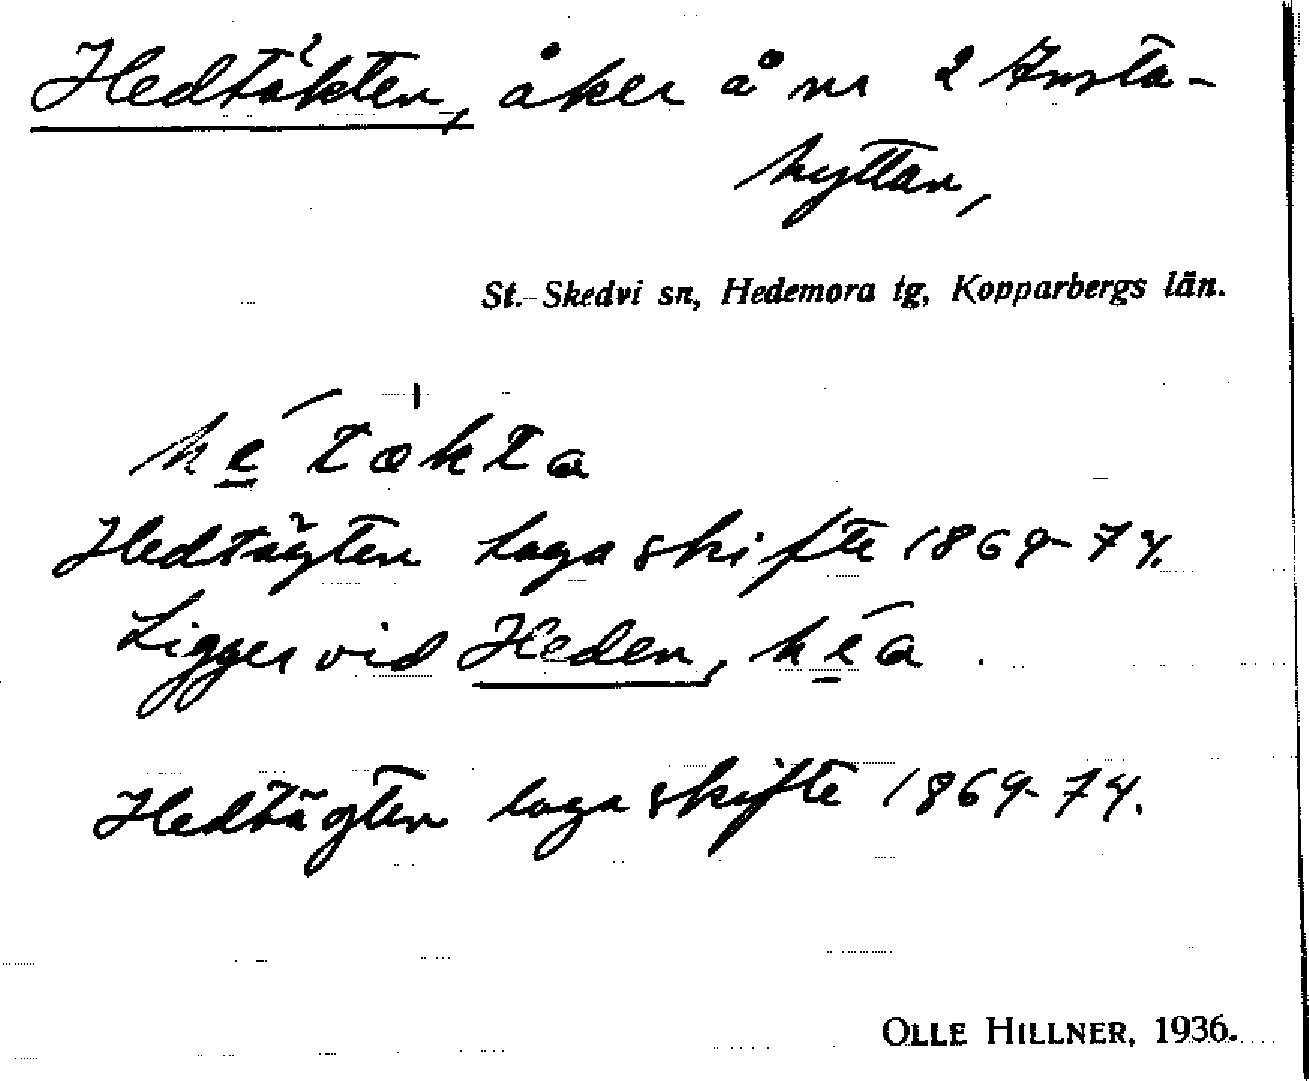 Hedtäkten, åker å nr 2 Knsta-
hyttan,
St. Skedvi sn, Hedemora tg, Kopparbergs län.
hétækta
Hedtägten laga skifte 1869-74.
Ligger vid Heden, héa
Hedtägten laga skifte 1869-74.
OLLE HILLNER, 1936.